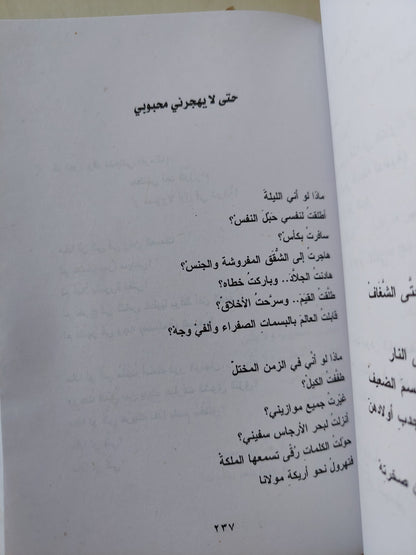 حتى لا يهجرني محبوبي
ماذا لو أني الليلةَ
أطلقتُ لنفسي حَبَلَ النفسْ؟
سافرتُ بكأسْ؟
هاجرتُ إلى الشُّقَقِ المفروشة والجنس؟
هادنتُ الجلّادَ.. وباركتُ خطاه؟
طلّقتُ القيَمَ.. وسرّحتُ الأخلاقْ؟
قابلتُ العالمَ بالبسماتِ الصفراءِ وألفيْ وجهْ؟
ماذا لو أنّي في الزمن المختلّ
طفّفتُ الكيلْ؟
غيّرتُ جميع موازيني؟
أنزلتُ لبحر الأرجاس سفيني؟
حوّلتُ الكلماتِ رُقًى تسمعها الملكةُ
فتهرولُ نحو أريكةِ مولانا
٢٣٧
حتَّى الشَّغاف
النار
الضعيفْ
أولادهنْ